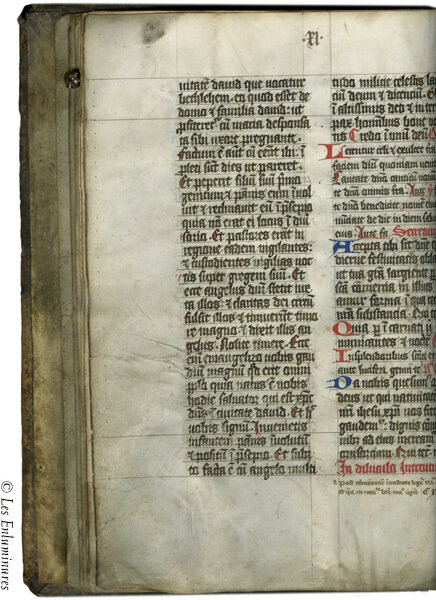 .XI.
uitatem dauid que uocatur
bethlehem. eo quod esset de
domo & familia dauid: ut
profiteret cum maria desponsa
ta sibi uxore pregnante.
Factum est aut cum eent ibi. i
pleti sunt dies ut pareret.
Et peperit filium suu primo
genitum & pannis eum inuol
uit & reclinauit eum i presepio
quia non erat ei locus i diuer
sorio. Et pastores erant in
regione eadem uigilantes:
& custodientes uigilias noc
tis super gregem suu. Et
ecce angelus dni stetit iux
ta illos: & claritas dei circu
fulsit illos & timuerunt timo
re magno & dixit illis an
gelus. Nolite timere. Ecce
enim euangelizo uobis gau
dium magnu qd erit omni
populo quia natus e uobis
hodie saluator qui est xpc
dns i ciuitate dauid. Et h
uobis signu. Inuenietis
infantem pannis inuolutu
& positu i presepio. Et subi
to facta e cu angelo multi
tudo militie celestis lau
tiu deum & dicentiu. Gl
i altissimis deo & in ter
pax hominibus bone uo
tis Credo i unu deu
Letentur celi & exultet
faciem dni quoniam uen
Cantate dno canticu
te dno omnis tra.
te dno benedicite nomi
nuntiate de die in diem
eius.
Accepta tibi sit dne
dierne festiuitatis obla
ut tua gra largiente p
sca comercia in illius
amur forma i qua te
nra substantia. Qui t
Quia p i carnati
In splendoribus scor
ante luciferu genui te
Da nobis quesum
deus ut qui natiuita
dni ihesu xpi nos
gaudem: dignis
nibz ad eius
consortium. Qui t
© Les Enluminures